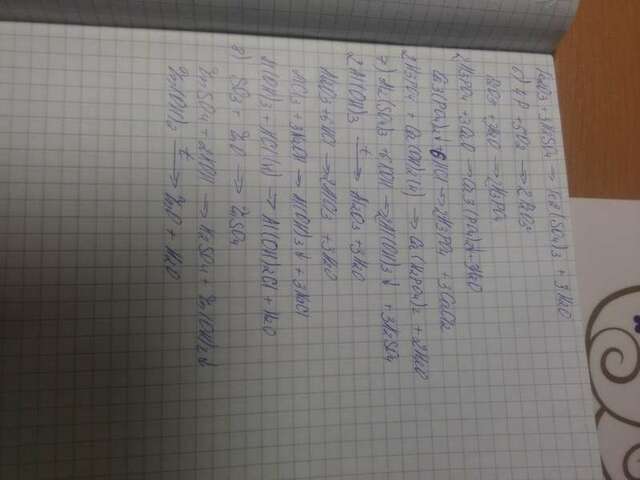 Fe2O3 + 3H2SO4 → Fe2(SO4)3 + 3H2O
6) 4P + 5O2 → 2P2O5
P2O5 + 3H2O → 2H3PO4
2H3PO4 + 3CaO → Ca3(PO4)2 + 3H2O
Ca3(PO4)2 + 6HCl → 2H3PO4 + 3CaCl2
2H3PO4 + Ca(OH)2(н) → Ca(H2PO4)2 + 2H2O
7) Al2(SO4)3 + 6KOH → 2Al(OH)3↓ + 3K2SO4
2Al(OH)3 t→ Al2O3 + 3H2O
Al2O3 + 6HCl → 2AlCl3 + 3H2O
AlCl3 + 3KOH → Al(OH)3↓ + 3KCl
Al(OH)3 + HCl(н) → Al(OH)2Cl + H2O
8) SO3 + ZnO → ZnSO4
ZnSO4 + 2KOH → K2SO4 + Zn(OH)2↓
Zn(OH)2 t→ ZnO + H2O